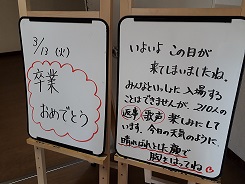 3/13 (火)
卒業
おめでとう
いよいよ この日が
来てしまいましたね。
みんなといっしょに 入場する
ことはできませんが、210人の
返事 歌声 楽しみにして
います。今日の天気のように、
晴ればれとした顔で
胸をはってね